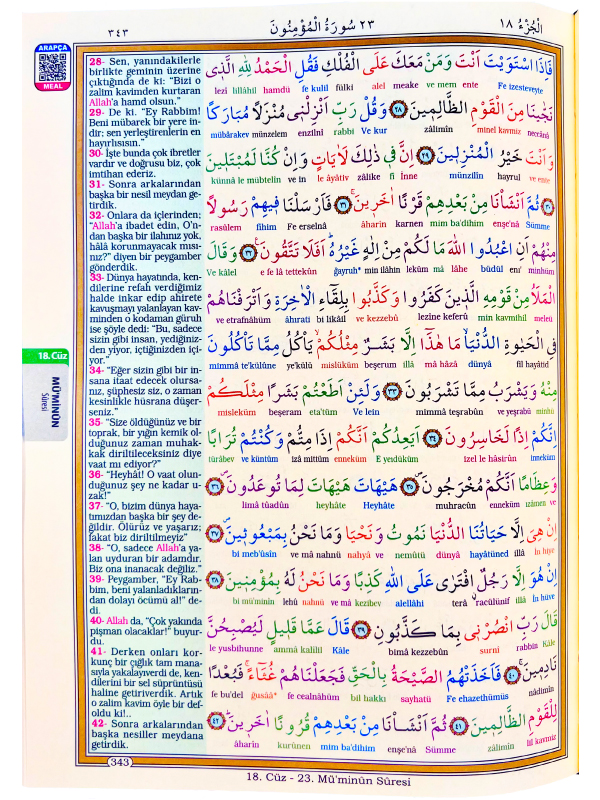 ٣٤٣
٢٣ سُورَةُ الْمُؤْمِنُونَ
الْجُزْءُ ١٨
ARAPÇA
MEAL
28- Sen, yanındakilerle
birlikte geminin üzerine
çıktığında de ki: "Bizi o
zalim kavimden kurtaran
Allah'a hamd olsun."
29- De ki. "Ey Rabbim!
Beni mübarek bir yere in-
dir; sen yerleştirenlerin en
hayırlısısın."
30- İşte bunda çok ibretler
vardır ve doğrusu biz, çok
imtihan ederiz.
31- Sonra arkalarından
başka bir nesil meydan ge-
tirdik.
32- Onlara da içlerinden;
"Allah'a ibadet edin, O'n-
dan başka bir ilahınız yok,
hâlâ korunmayacak mısı-
nız?" diyen bir peygamber
gönderdik.
33- Dünya hayatında, ken-
dilerine refah verdiğimiz
halde inkar edip ahirete
kavuşmayı yalanlayan kav-
minden o kodaman güruh
ise şöyle dedi: "Bu, sadece
sizin gibi insan, yediğiniz-
den yiyor, içtiğinizden içi-
yor."
34- "Eğer sizin gibi bir in-
sana itaat edecek olursa-
nız, şüphesiz siz, o zaman
kesinlikle hüsrana düşer-
seniz."
35- "Size öldüğünüz ve bir
toprak, bir yığın kemik ol-
duğunuz zaman muhak-
kak diriltileceksiniz diye
vaat mı ediyor?"
36- "Heyhât! O vaat olun-
duğunuz şey ne kadar u-
zak!"
37- "O, bizim dünya haya-
tımızdan başka bir şey de-
ğildir. Ölürüz ve yaşarız;
fakat biz diriltilmeyiz"
38- "O, sadece Allah'a ya-
lan uyduran bir adamdır.
Biz ona inanacak değiliz."
39- Peygamber, "Ey Rab-
bim, beni yalanladıkların-
dan dolayı öcümü al!" de-
di.
40- Allah da, "Çok yakında
pişman olacaklar!" buyur-
du.
41- Derken onları kor-
kunç bir çığlık tam mana-
sıyla yakalayıverdi de, ken-
dilerini bir sel süprüntüsü
haline getiriverdik. Artık
o zalim kavim öyle bir def-
oldu ki!..
42- Sonra arkalarından
başka nesiller meydana
getirdik.
18.Cüz
MÜ'MİNÛN
Sûresi
فَاِذَا اسْتَوَيْتَ اَنْتَ وَمَنْ مَعَكَ عَلَى الْفُلْكِ فَقُلِ الْحَمْدُ لِلّٰهِ الَّذٖى
Fe izesteveyte ente ve mem meake alel fülki fe kulil hamdü lillâhil lezi
نَجّٰينَا مِنَ الْقَوْمِ الظَّالِمٖينَ ﴿٢٨﴾ وَقُلْ رَبِّ اَنْزِلْنٖى مُنْزَلًا مُبَارَكًا
neccânâ minel kavmiz zâlimîn Ve kur rabbi enzilnî münzelem mübârakev
وَاَنْتَ خَيْرُ الْمُنْزِلٖينَ ﴿٢٩﴾ اِنَّ فٖى ذٰلِكَ لَاٰيَاتٍ وَاِنْ كُنَّا لَمُبْتَلٖينَ
ve ente hayrul münzilîn İnne fî zâlike le âyâtiv ve in künnâ le mübtelîn
﴿٣٠﴾ ثُمَّ اَنْشَأْنَا مِنْ بَعْدِهِمْ قَرْنًا اٰخَرٖينَ ﴿٣١﴾ فَاَرْسَلْنَا فٖيهِمْ رَسُولًا
Sümme enşe'nâ mim ba'dihim karnen âharîn Fe erselnâ fîhim rasûlem
مِنْهُمْ اَنِ اعْبُدُوا اللّٰهَ مَا لَكُمْ مِنْ اِلٰهٍ غَيْرُهُ اَفَلَا تَتَّقُونَ ﴿٣٢﴾ وَقَالَ
minhüm eni' büdûl lâhe mâ leküm min ilâhin ğayruh* e fe lâ tettekûn Ve kâlel
الْمَلَاُ مِنْ قَوْمِهِ الَّذٖينَ كَفَرُوا وَكَذَّبُوا بِلِقَٓاءِ الْاٰخِرَةِ وَاَتْرَفْنَاهُمْ
meleü min kavmihil lezîne keferû ve kezzebû bi likâil âhırati ve etrafnâhüm
فِى الْحَيٰوةِ الدُّنْيَا مَا هٰذَٓا اِلَّا بَشَرٌ مِثْلُكُمْ يَأْكُلُ مِمَّا تَأْكُلُونَ
fil hayâtid dünyâ mâ hâzâ illâ beşerum mislüküm ye'külü mimmâ te'külûne
مِنْهُ وَيَشْرَبُ مِمَّا تَشْرَبُونَ ﴿٣٣﴾ وَلَئِنْ اَطَعْتُمْ بَشَرًا مِثْلَكُمْ
minhü ve yeşrabü mimmâ teşrabûn Ve lein eta'tüm beşeram misleküm
اِنَّكُمْ اِذًا لَخَاسِرُونَ ﴿٣٤﴾ اَيَعِدُكُمْ اَنَّكُمْ اِذَا مِتُّمْ وَكُنْتُمْ تُرَابًا
inneküm izel le hâsirûn E yeıdüküm enneküm izâ mittüm ve küntüm türâbev
وَعِظَامًا اَنَّكُمْ مُخْرَجُونَ ﴿٣٥﴾ هَيْهَاتَ هَيْهَاتَ لِمَا تُوعَدُونَ ﴿٣٦﴾
ve ızâmen enneküm muhracûn Heyhâte Heyhâte limâ tûadûn
اِنْ هِىَ اِلَّا حَيَاتُنَا الدُّنْيَا نَمُوتُ وَنَحْيَا وَمَا نَحْنُ بِمَبْعُوثٖينَ ﴿٣٧﴾
İn hiye illâ hayâtüned dünyâ nemûtü ve nahyâ ve mâ nahnü bi meb'ûsîn
اِنْ هُوَ اِلَّا رَجُلٌ افْتَرٰى عَلَى اللّٰهِ كَذِبًا وَمَا نَحْنُ لَهُ بِمُؤْمِنٖينَ ﴿٣٨﴾
İn hüve illâ racülünif terâ alellâhi kezibev ve mâ nahnü lehû bi mü'minîn
قَالَ رَبِّ انْصُرْنٖى بِمَا كَذَّبُونِ ﴿٣٩﴾ قَالَ عَمَّا قَلٖيلٍ لَيُصْبِحُنَّ
Kâle rabbin surnî bimâ kezzebûn Kâle ammâ kalîlil le yusbihunne
نَادِمٖينَ ﴿٤٠﴾ فَاَخَذَتْهُمُ الصَّيْحَةُ بِالْحَقِّ فَجَعَلْنَاهُمْ غُثَٓاءً فَبُعْدًا
nâdimîn Fe ehazethümüs sayhatü bil hakkı fe cealnâhüm ğusââ* fe bu'del
لِلْقَوْمِ الظَّالِمٖينَ ﴿٤١﴾ ثُمَّ اَنْشَأْنَا مِنْ بَعْدِهِمْ قُرُونًا اٰخَرٖينَ ﴿٤٢﴾
lil kavmiz zâlimîn Sümme enşe'nâ mim ba'dihim kurûnen âharîn
343
18. Cüz - 23. Mü'minûn Sûresi